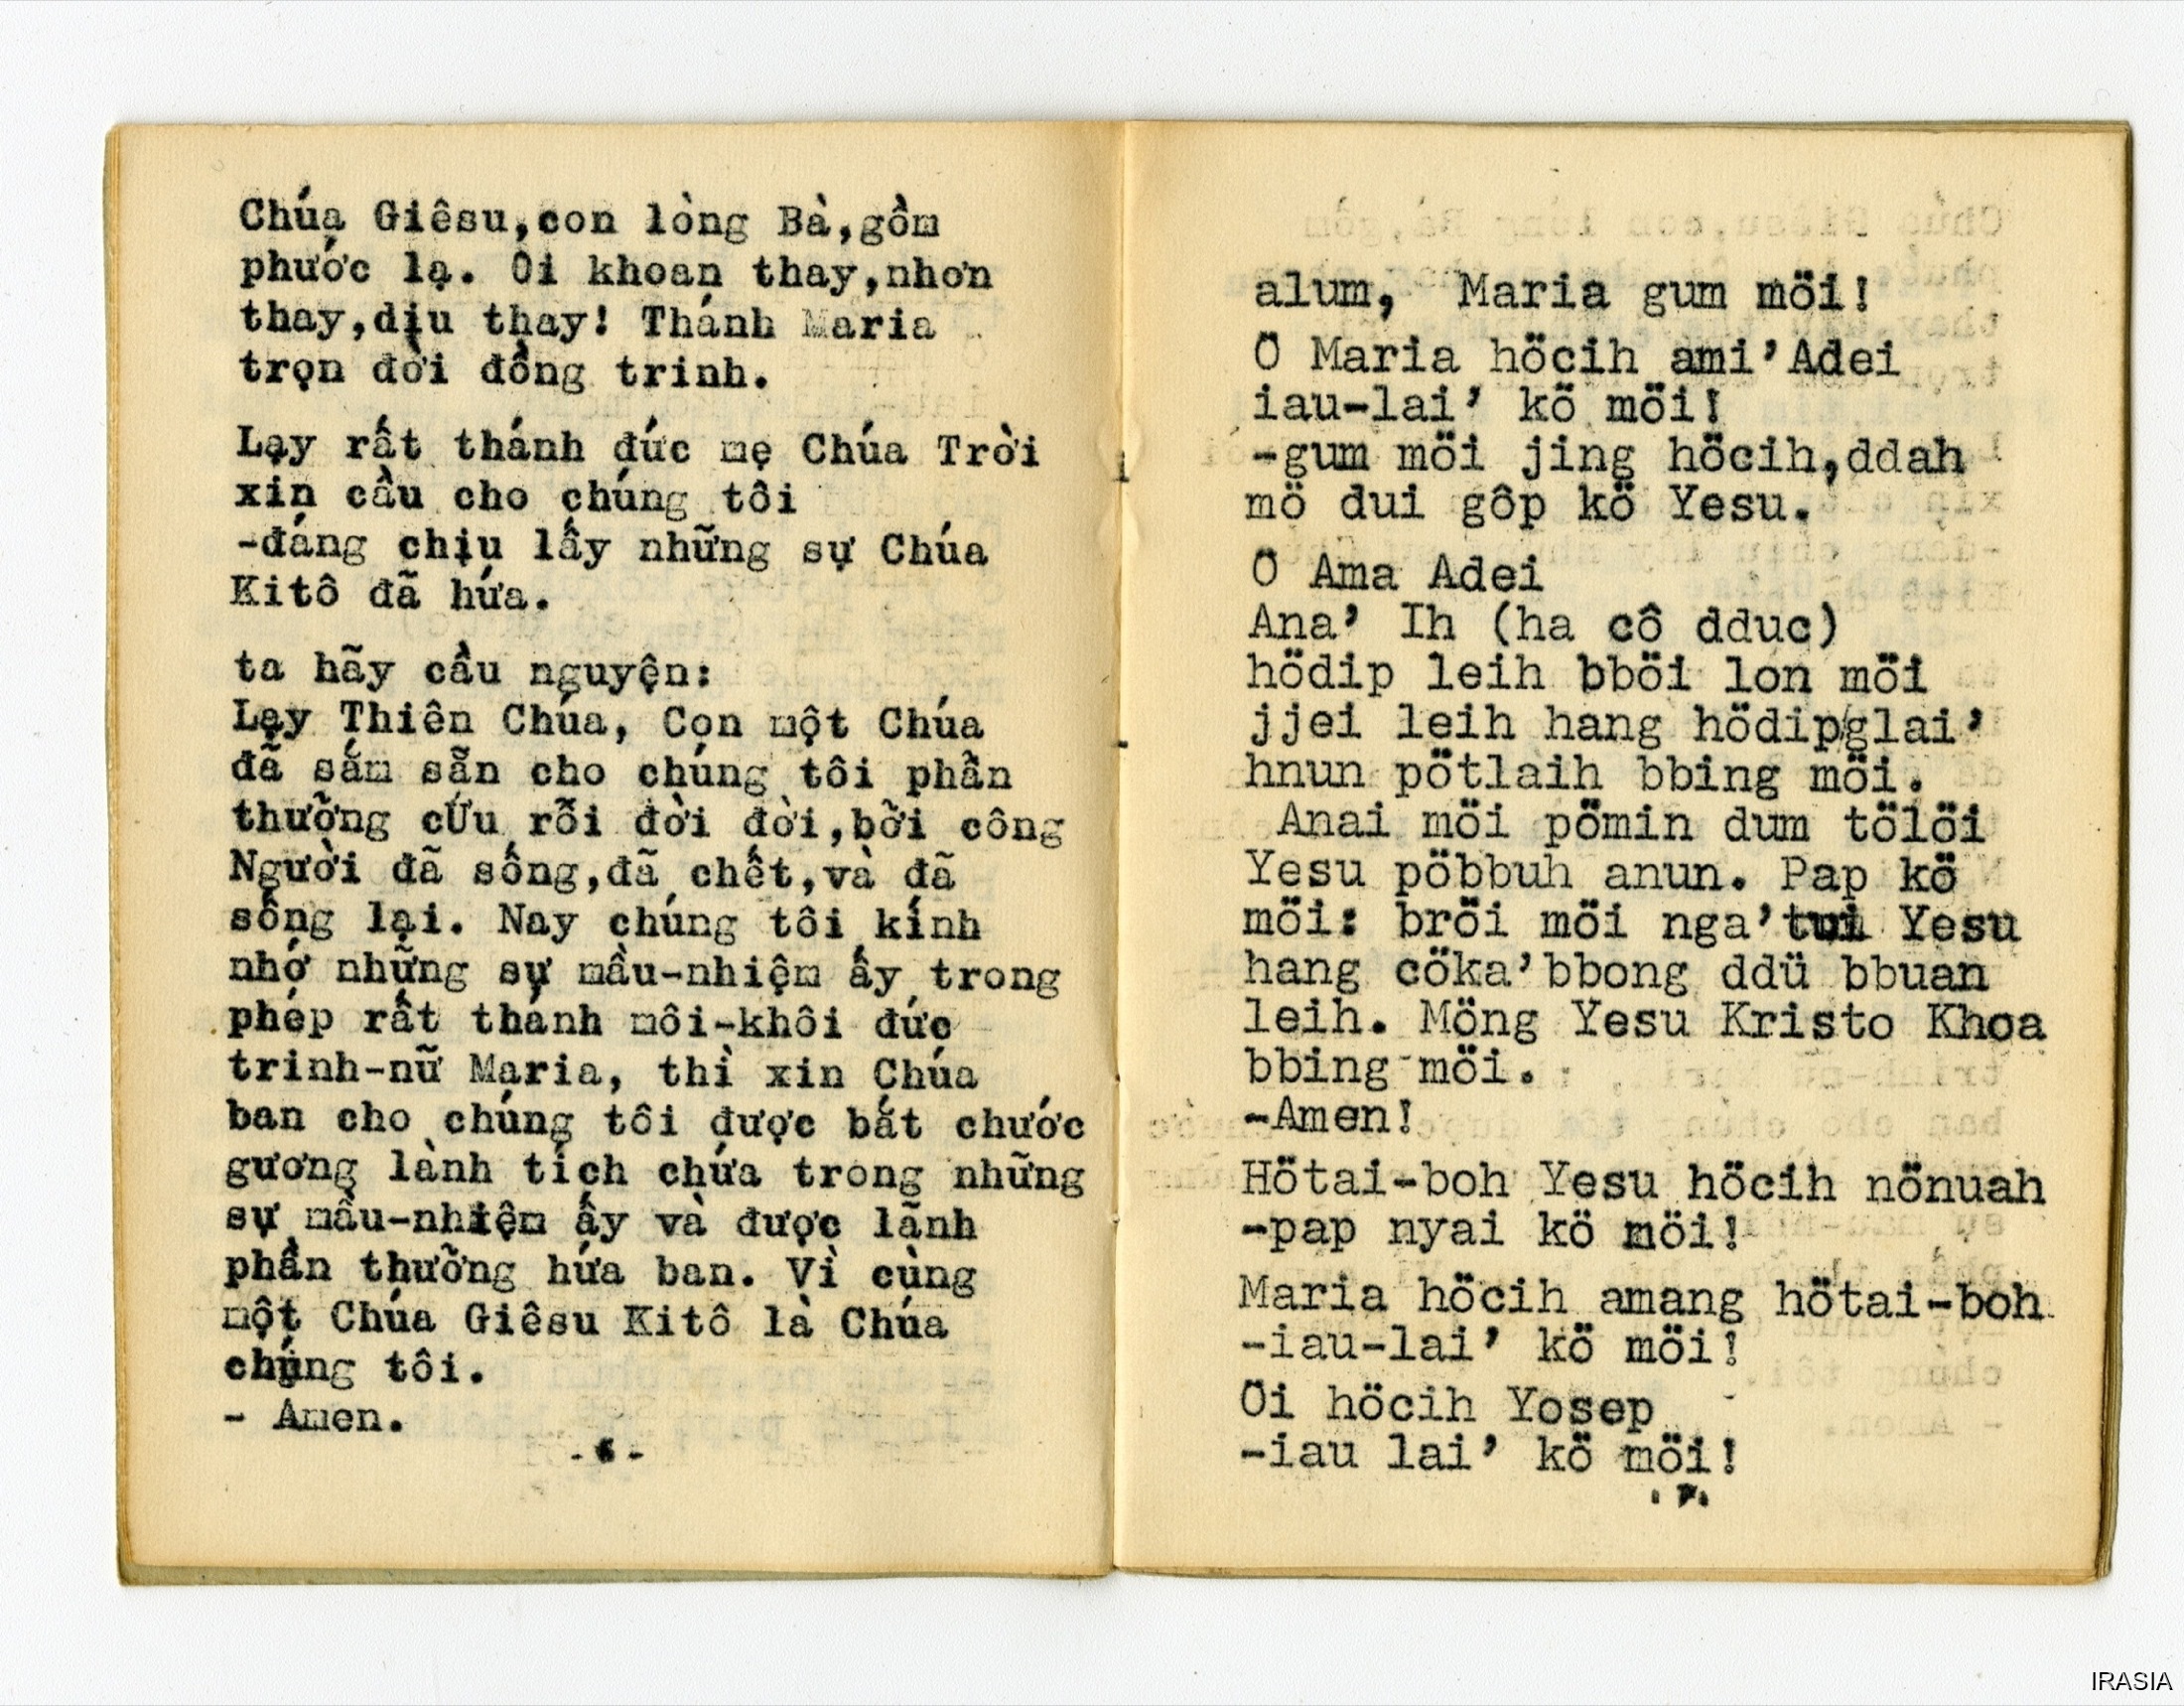 Chúa Giêsu,con lòng Bà,gồm
phước lạ. Ôi khoan thay,nhơn
thay,dịu thay! Thánh Maria
trọn đời đồng trinh.
Lạy rất thánh đức mẹ Chúa Trời
xin cầu cho chúng tôi
-đáng chịu lấy những sự Chúa
Kitô đã hứa.
ta hãy cầu nguyện:
Lạy Thiên Chúa, Con một Chúa
đã sắm sẵn cho chúng tôi phần
thưỡng cứu rỗi đời đời,bỡi công
Người đã sống,đã chết,và đã
sống lại. Nay chúng tôi kính
nhớ những sự mầu-nhiệm ấy trong
phép rất thánh môi-khôi đức
trinh-nữ Maria, thì xin Chúa
ban cho chúng tôi được bắt chước
gương lành tích chứa trong những
sự mầu-nhiệm ấy và được lãnh
phần thưỡng hứa ban. Vì cùng
một Chúa Giêsu Kitô là Chúa
chúng tôi.
- Amen.
-6-
alum, Maria gum möi!
Ö Maria höcih ami'Adei
iau-lai' kö möi!
-gum möi jing höcih,ddah
mö dui gôp kö Yesu.
Ö Ama Adei
Ana' Ih (ha cô dduc)
hödip leih bböi lon möi
jjei leih hang hödip/glai'
hnun pötlaih bbing möi.
Anai möi pömin dum tölöi
Yesu pöbbuh anun. Pap kö
möi: bröi möi nga'tui Yesu
hang cöka'bbong ddü bbuan
leih. Möng Yesu Kristo Khoa
bbing möi.
-Amen!
Hötai-boh Yesu höcih nönuah
-pap nyai kö möi!
Maria höcih amang hötai-boh
-iau-lai' kö möi!
Öi höcih Yosep
-iau lai' kö möi!
.7.
IRASIA